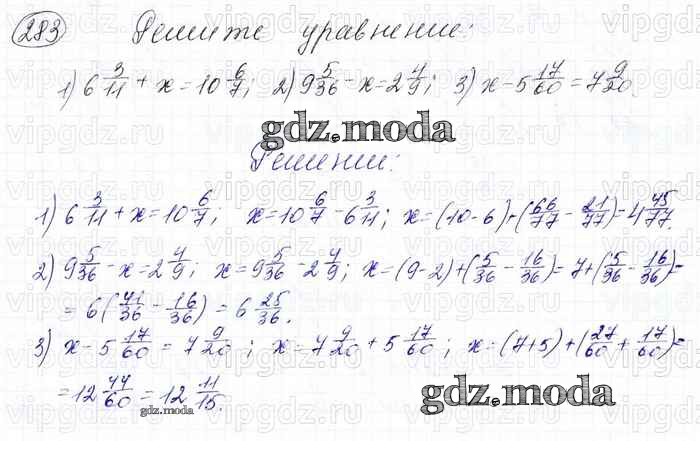 283 Решите уравнение:
1) 6 3/11 + x = 10 6/7; 2) 9 5/36 - x = 2 4/9; 3) x - 5 17/60 = 7 9/20.
gdz.moda
Решение:
1) 6 3/11 + x = 10 6/7; x = 10 6/7 - 6 3/11; x = (10-6)+(66/77 - 21/77) = 4 45/77.
2) 9 5/36 - x = 2 4/9; x = 9 5/36 - 2 4/9; x = (9-2)+(5/36 - 16/36) = 7+(5/36 - 16/36) =
= 6(41/36 - 16/36) = 6 25/36.
3) x - 5 17/60 = 7 9/20; x = 7 9/20 + 5 17/60; x = (7+5)+(27/60 + 17/60) =
= 12 44/60 = 12 11/15.
gdz.moda
gdz.moda